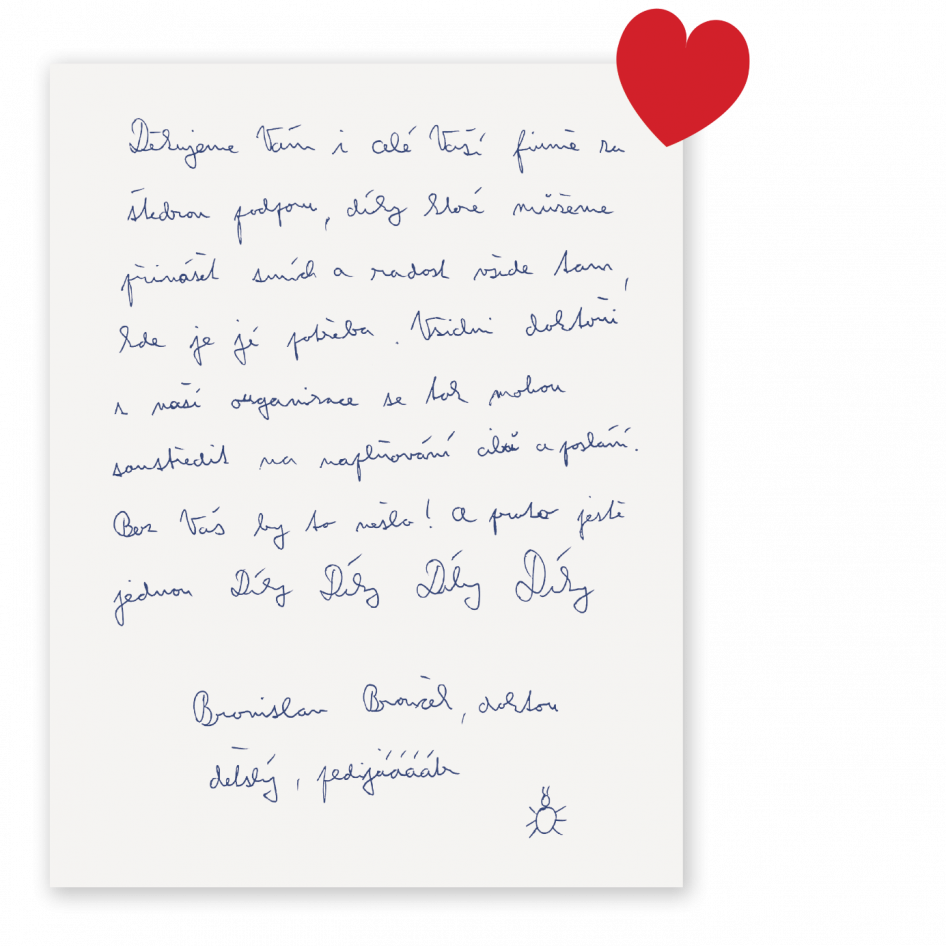 Děkujeme Vám i celé Vaší firmě za
štědrou podporu, díky které můžeme
přinášet smích a radost všude tam,
kde je jí potřeba. Všichni doktoři
z naší organizace se tak mohou
soustředit na naplňování cílů a poslání.
Bez Vás by to nešlo! A proto ještě
jednou Díky Díky Díky Díky
Bronislav Brouček, doktor
dětský, pedijáááátr